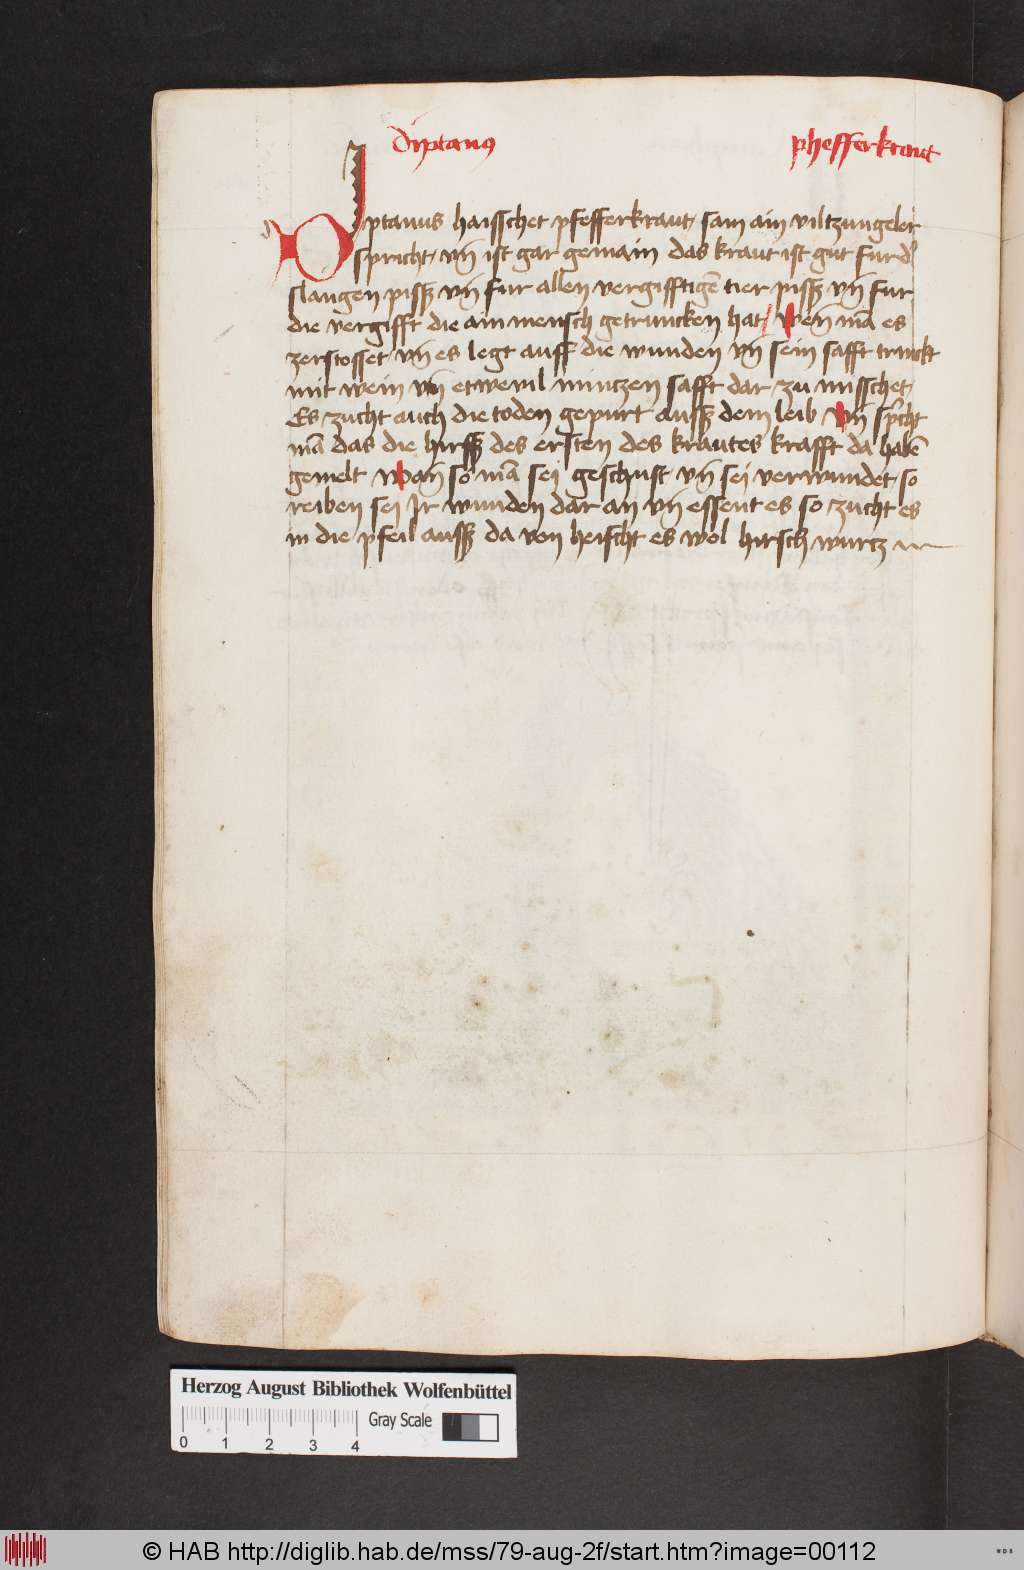 Diptanus phefferkraut
DIptanus haisschet pfefferkraut, sam ain viltzungeler
spricht, vn̄ ist gar gemain das kraut ist gut fur d'
slangen pissz vn̄ fur allen vergifftigē tier pissz vn̄ fur
die vergifft die ain mensch getruncken hat / Wen̄ mā es
zerstosset vn̄ es legt auff die wunden vn̄ sein safft trinckt
mit wein vn̄ etwevil mintzen safft dar zu misschet,
Es zucht auch die toden gepurt aussz dem leib Vn̄ spricht
mā das die hirssz des ersten des krautes krafft da habē
gemelt Wan̄ so mā sei geschust vn̄ sei verwundet, so
reiben sei Ir wunden dar an vn̄ essent es so zucht es
in die pfeil aussz da von heischt es wol hirsch wurtz
Herzog August Bibliothek Wolfenbüttel
Gray Scale
0 1 2 3 4
© HAB http://diglib.hab.de/mss/79-aug-2f/start.htm?image=00112